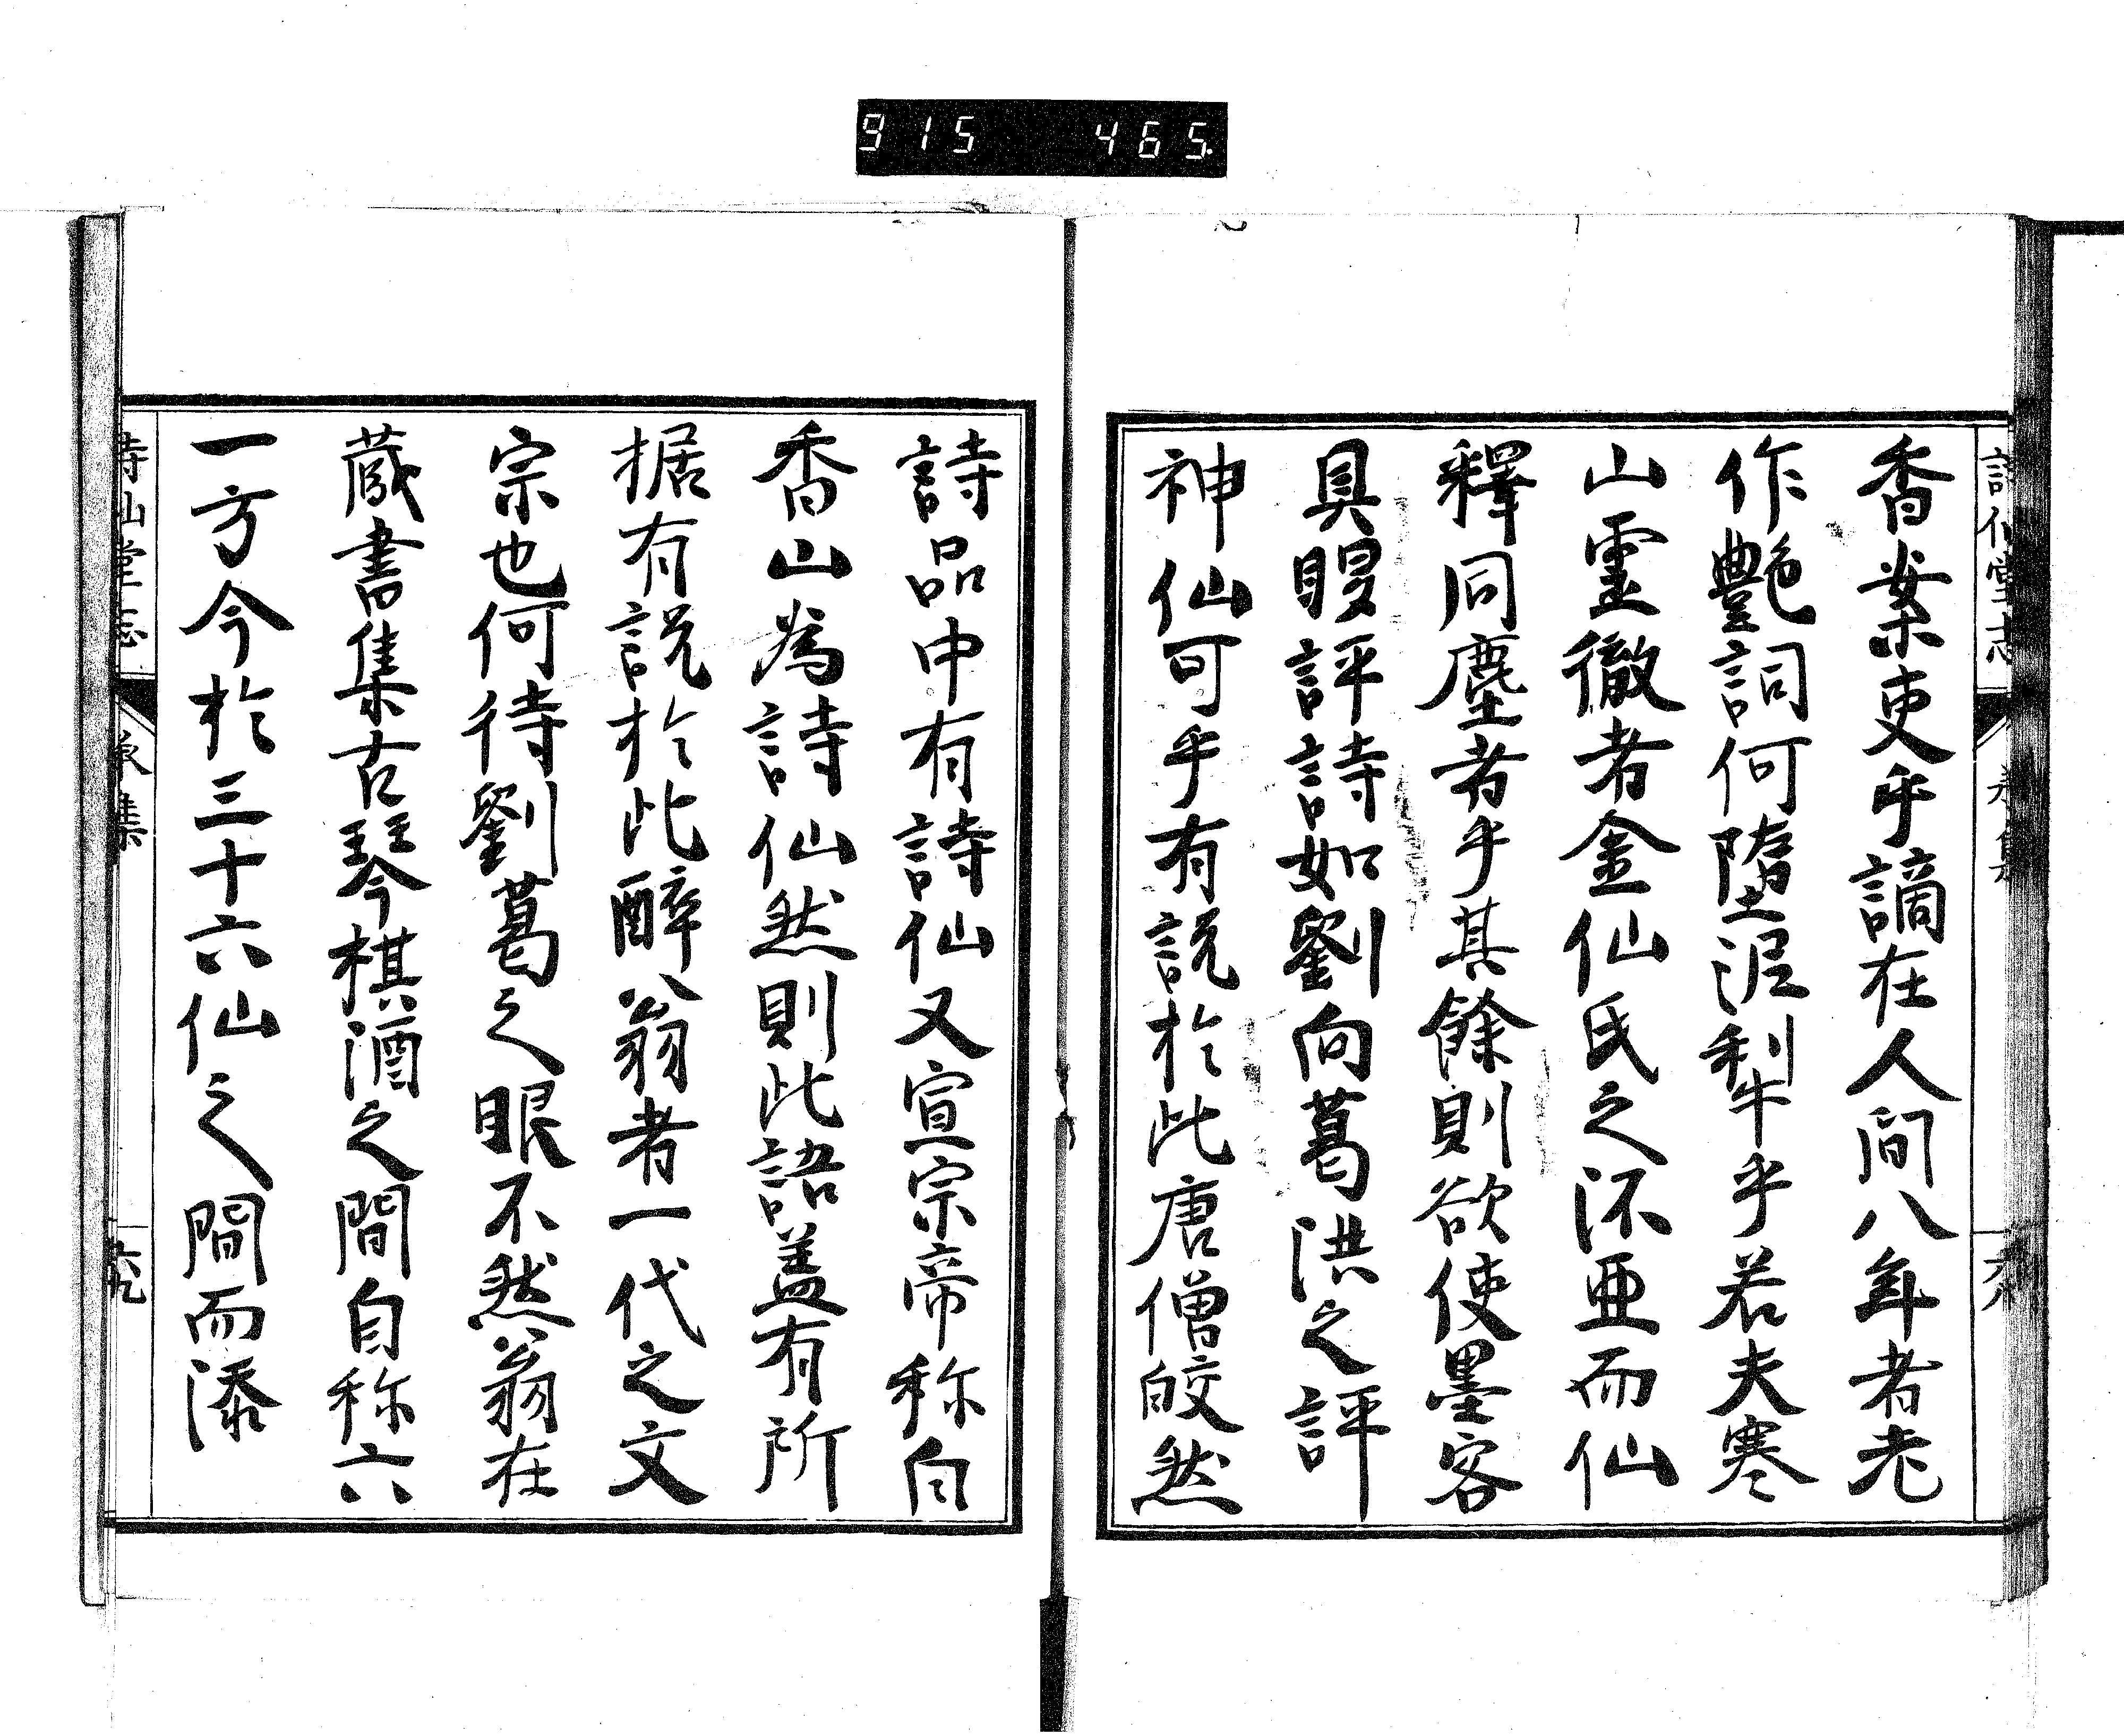 915 465
香案吏乎謫在人間八年者老
作艶詞何墮泥犁乎若夫寒
山靈徹者金仙氏之流亜而仙
釋同塵者乎其餘則欲使墨客
具眼評詩如劉向葛洪之評
神仙可乎有説於此唐僧皎然
詩品中有詩仙又宣宗帝称白
香山為詩仙然則此語盖有所
据有説於此醉翁者一代之文
宗也何待劉葛之眼不然翁在
蔵書集古琴棋酒之間自称六
一方今於三十六仙之間而添
詩仙堂志
集